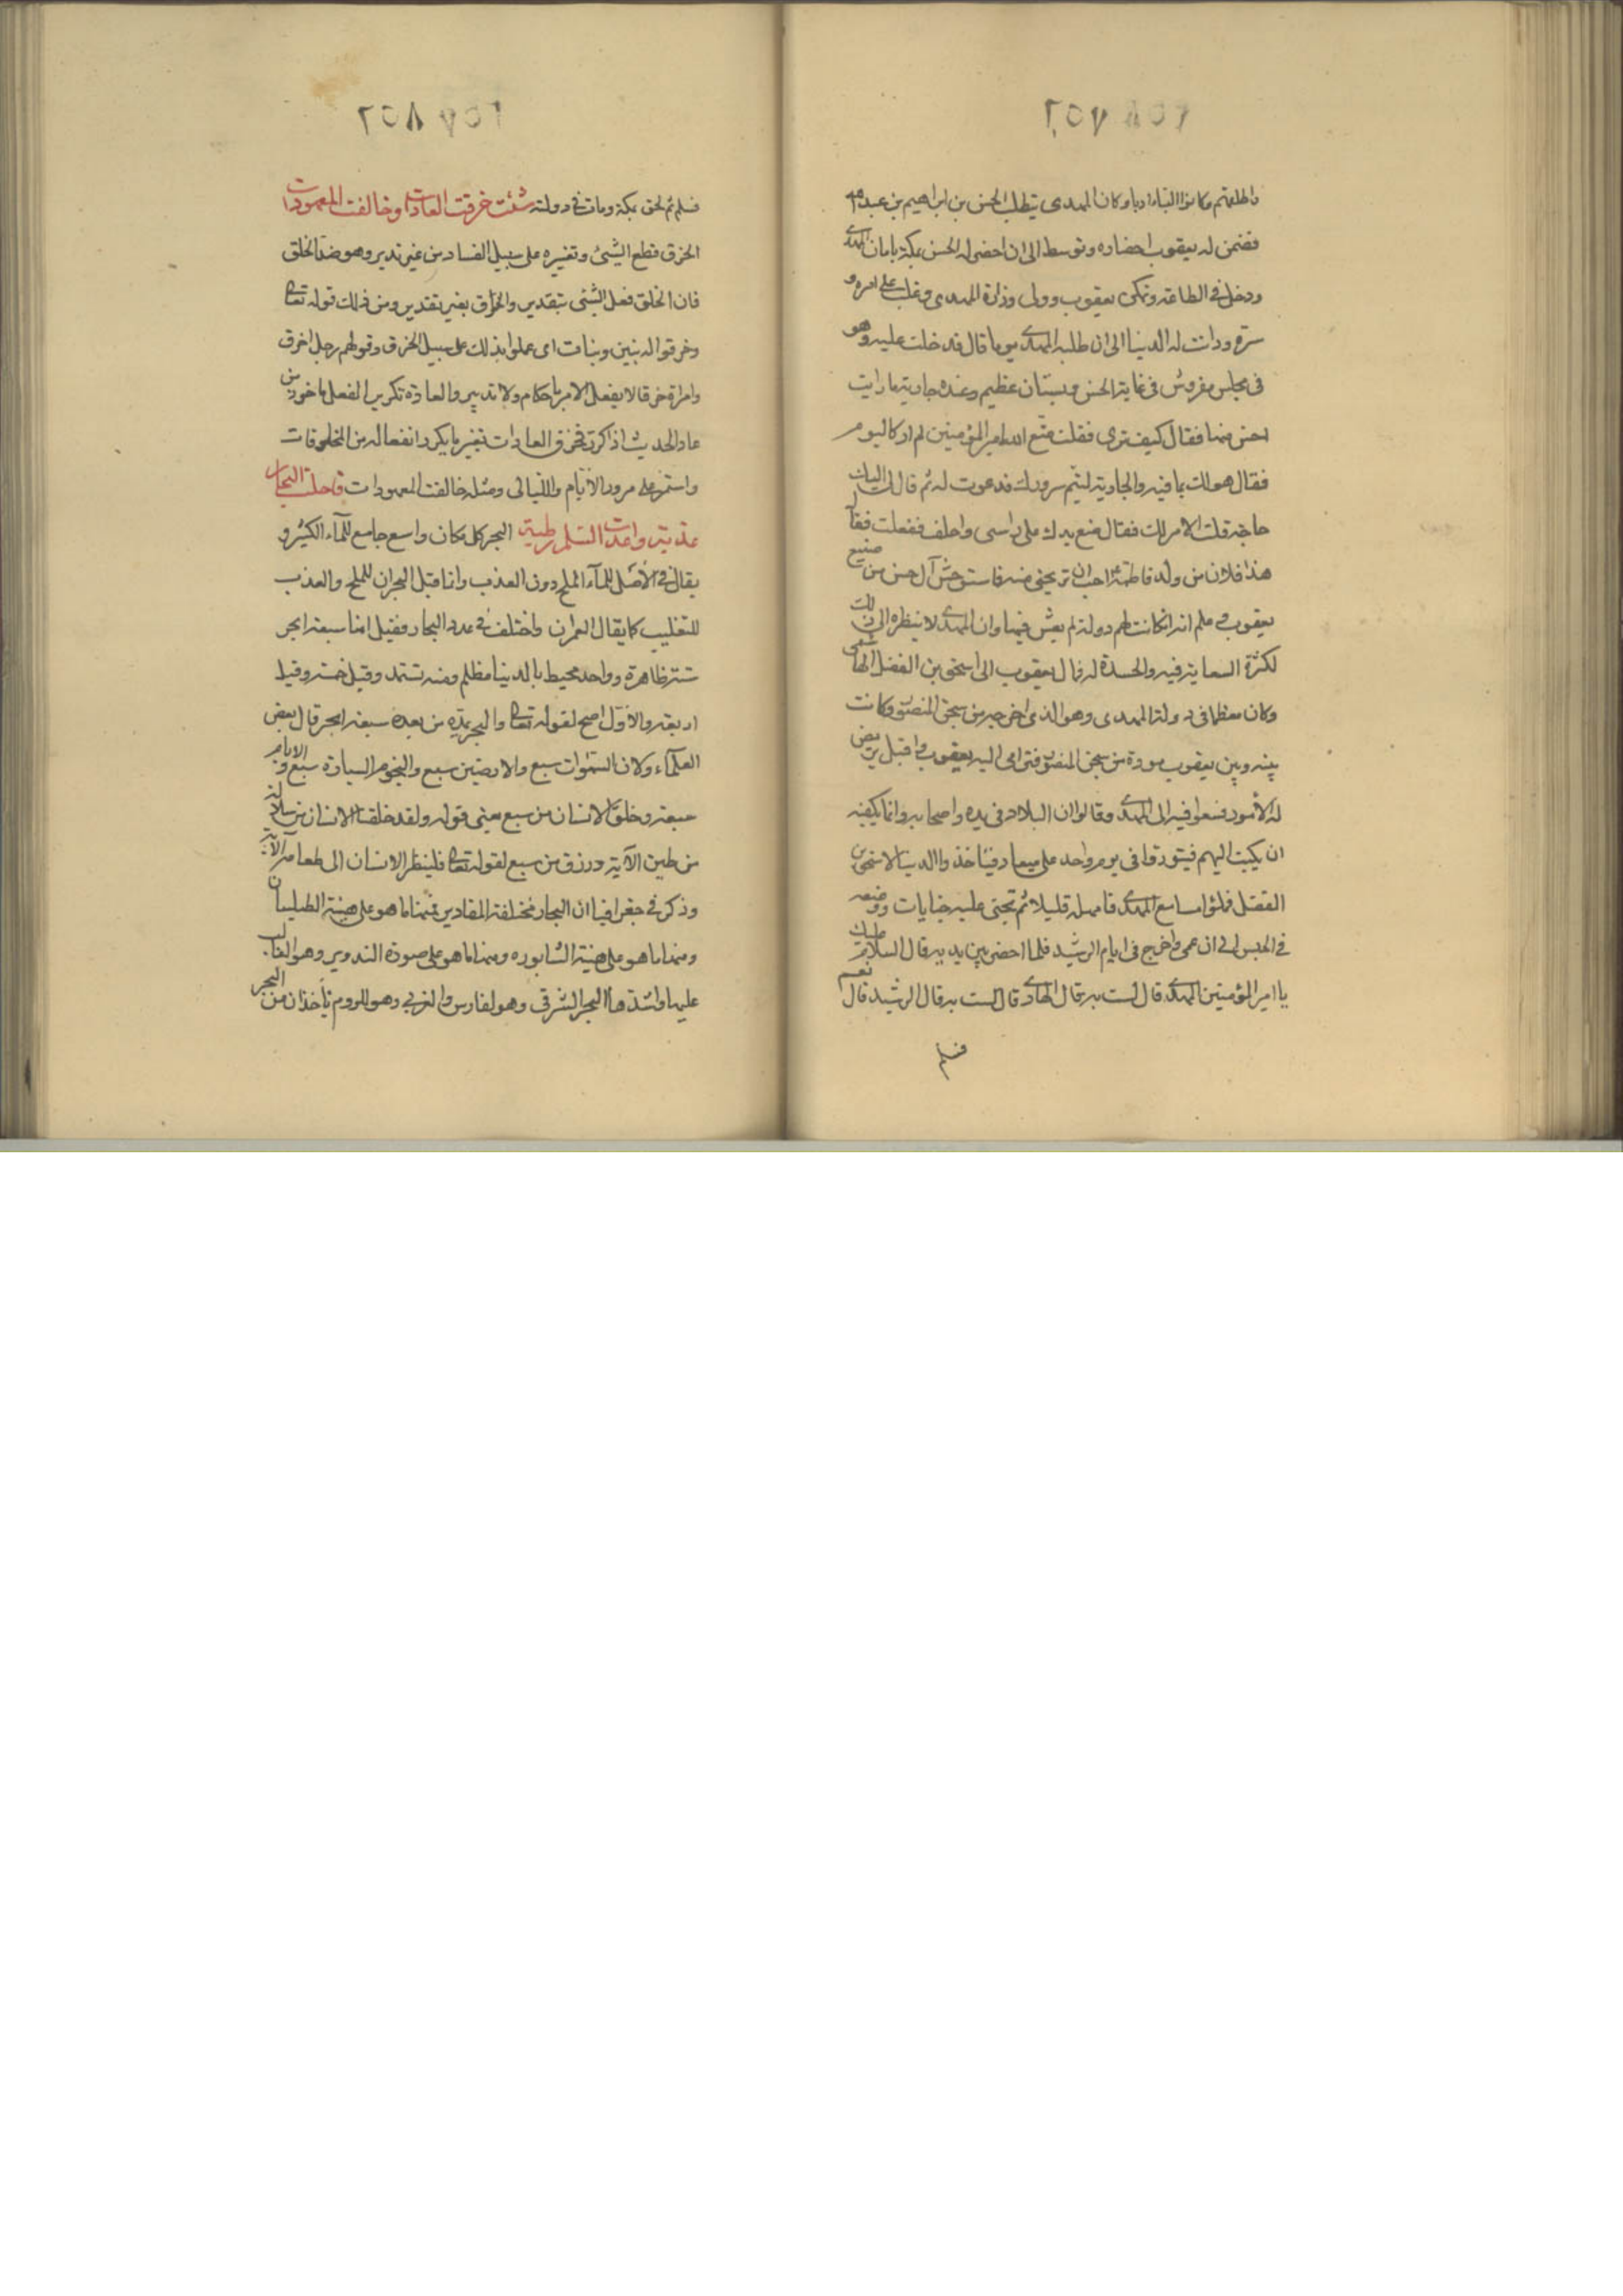 ٢٥٧
واطلعتم وكانوا البناء ادبا وكان المهدى يتطلب الحسن بن ابراهيم بن عبد الله
فضمن له يعقوب احضاره وتوسط الى ان احضر له الحسن بمكة بامان المهدى
ودخل فى الطاعة وتمكن يعقوب وولى وزارة المهدى وغلب على امره و
سره ودانت له الدنيا الى ان طلبه المهدى يوما قال فدخلت عليه وهو
فى مجلس مفروش فى غاية الحسن وبستان عظيم وعنده جارية ما رايت
احسن منها فقال كيف ترى فقلت متع الله امير المؤمنين لم ار كاليوم
فقال هو لك بما فيه والجارية ليتم سرورك فدعوت له ثم قال لى اليك
حاجة قلت الامر لك فقال ضع يدك على راسى واحلف ففعلت فقال
هذا فلان من ولد فاطمة احب ان تريحنى منه فاستوحش آل حسن من صنيع
يعقوب وعلم انه ان كانت لهم دولة لم يعش فيها وان المهدى لا ينظره الى ذلك
لكثرة السعاية فيه والحسدة له فمال يعقوب الى اسحق بن الفضل الهاشمى
وكان معظما فى دولة المهدى وهو الذى اخرجه من سجن المنصور وكانت
بينه وبين يعقوب مودة من سجن المنصور فترامى اليه يعقوب واقبل يربض
له الامور فسعوا فيه الى المهدى وقالوا ان البلاد فى يده واصحابه وانما يكفيه
ان يكتب اليهم فيثوروا فى يوم واحد على ميعاد فياخذوا الدنيا لاسحق بن
الفضل فملؤا مسامع المهدى فامهله قليلا ثم تجنى عليه جنايات ووضعه
فى الحبس الى ان عمى واخرج فى ايام الرشيد فلما احضر بين يديه قال السلام عليك
يا امير المؤمنين المهدى قال لست به قال الهادى قال لست به قال الرشيد قال نعم
فسلم
٢٥٨
فسلم ثم لحق بمكة ومات فى دولته شئت خرقت العادات وخالفت المعهودات
الخرق قطع الشئ وتغييره على سبيل الفساد من غير تدبر وهو ضد الخلق
فان الخلق فعل الشئ بتقدير والخرق بغير تقدير ومن ذلك قوله تعالى
وخرقوا له بنين وبنات اى عملوا بذلك على سبيل الخرق وقولهم رجل اخرق
وامراة خرقا لا يفعل الامر باحكام ولا تدبير والعادة تكرير الفعل ماخوذ من
عاد الحديث اذا كرر فخرق العادات تغير ما يكرر انفعاله من المخلوقات
واستمر على مرور الايام والليالى ومثله خالفت المعهودات فاحلت البحار
عذبة واعدت السلم رطبة البحر كل مكان واسع جامع للمآء الكثير و
يقال فى الاصل للمآء الملح دون العذب وانما قيل البحران للملح والعذب
للتغليب كما يقال العمران واختلف فى عدد البحار فقيل انها سبعة ابحر
ستة ظاهرة وواحد محيط بالدنيا مظلم ومنه تستمد وقيل خمسة وقيل
اربعة والاول اصح لقوله تعالى والبحر يمده من بعده سبعة ابحر قال بعض
العلمآء ولان السموات سبع والارضين سبع والنجوم السيارة سبع والايام
سبعة وخلق الانسان من سبع يعنى قوله ولقد خلقنا الانسان من سلالة
من طين الآية ورزق من سبع لقوله تعالى فلينظر الانسان الى طعامه الآية
وذكر فى جغرافيا ان البحار مختلفة المقادير فمنها ما هو على هيئة الطيلسان
ومنها ما هو على هيئة الشابوره ومنها ما هو على صورة التدوير وهو الغالب
عليها واشدها البحر الشرقى وهو لفارس والغربى وهو للروم ياخذان من البحر